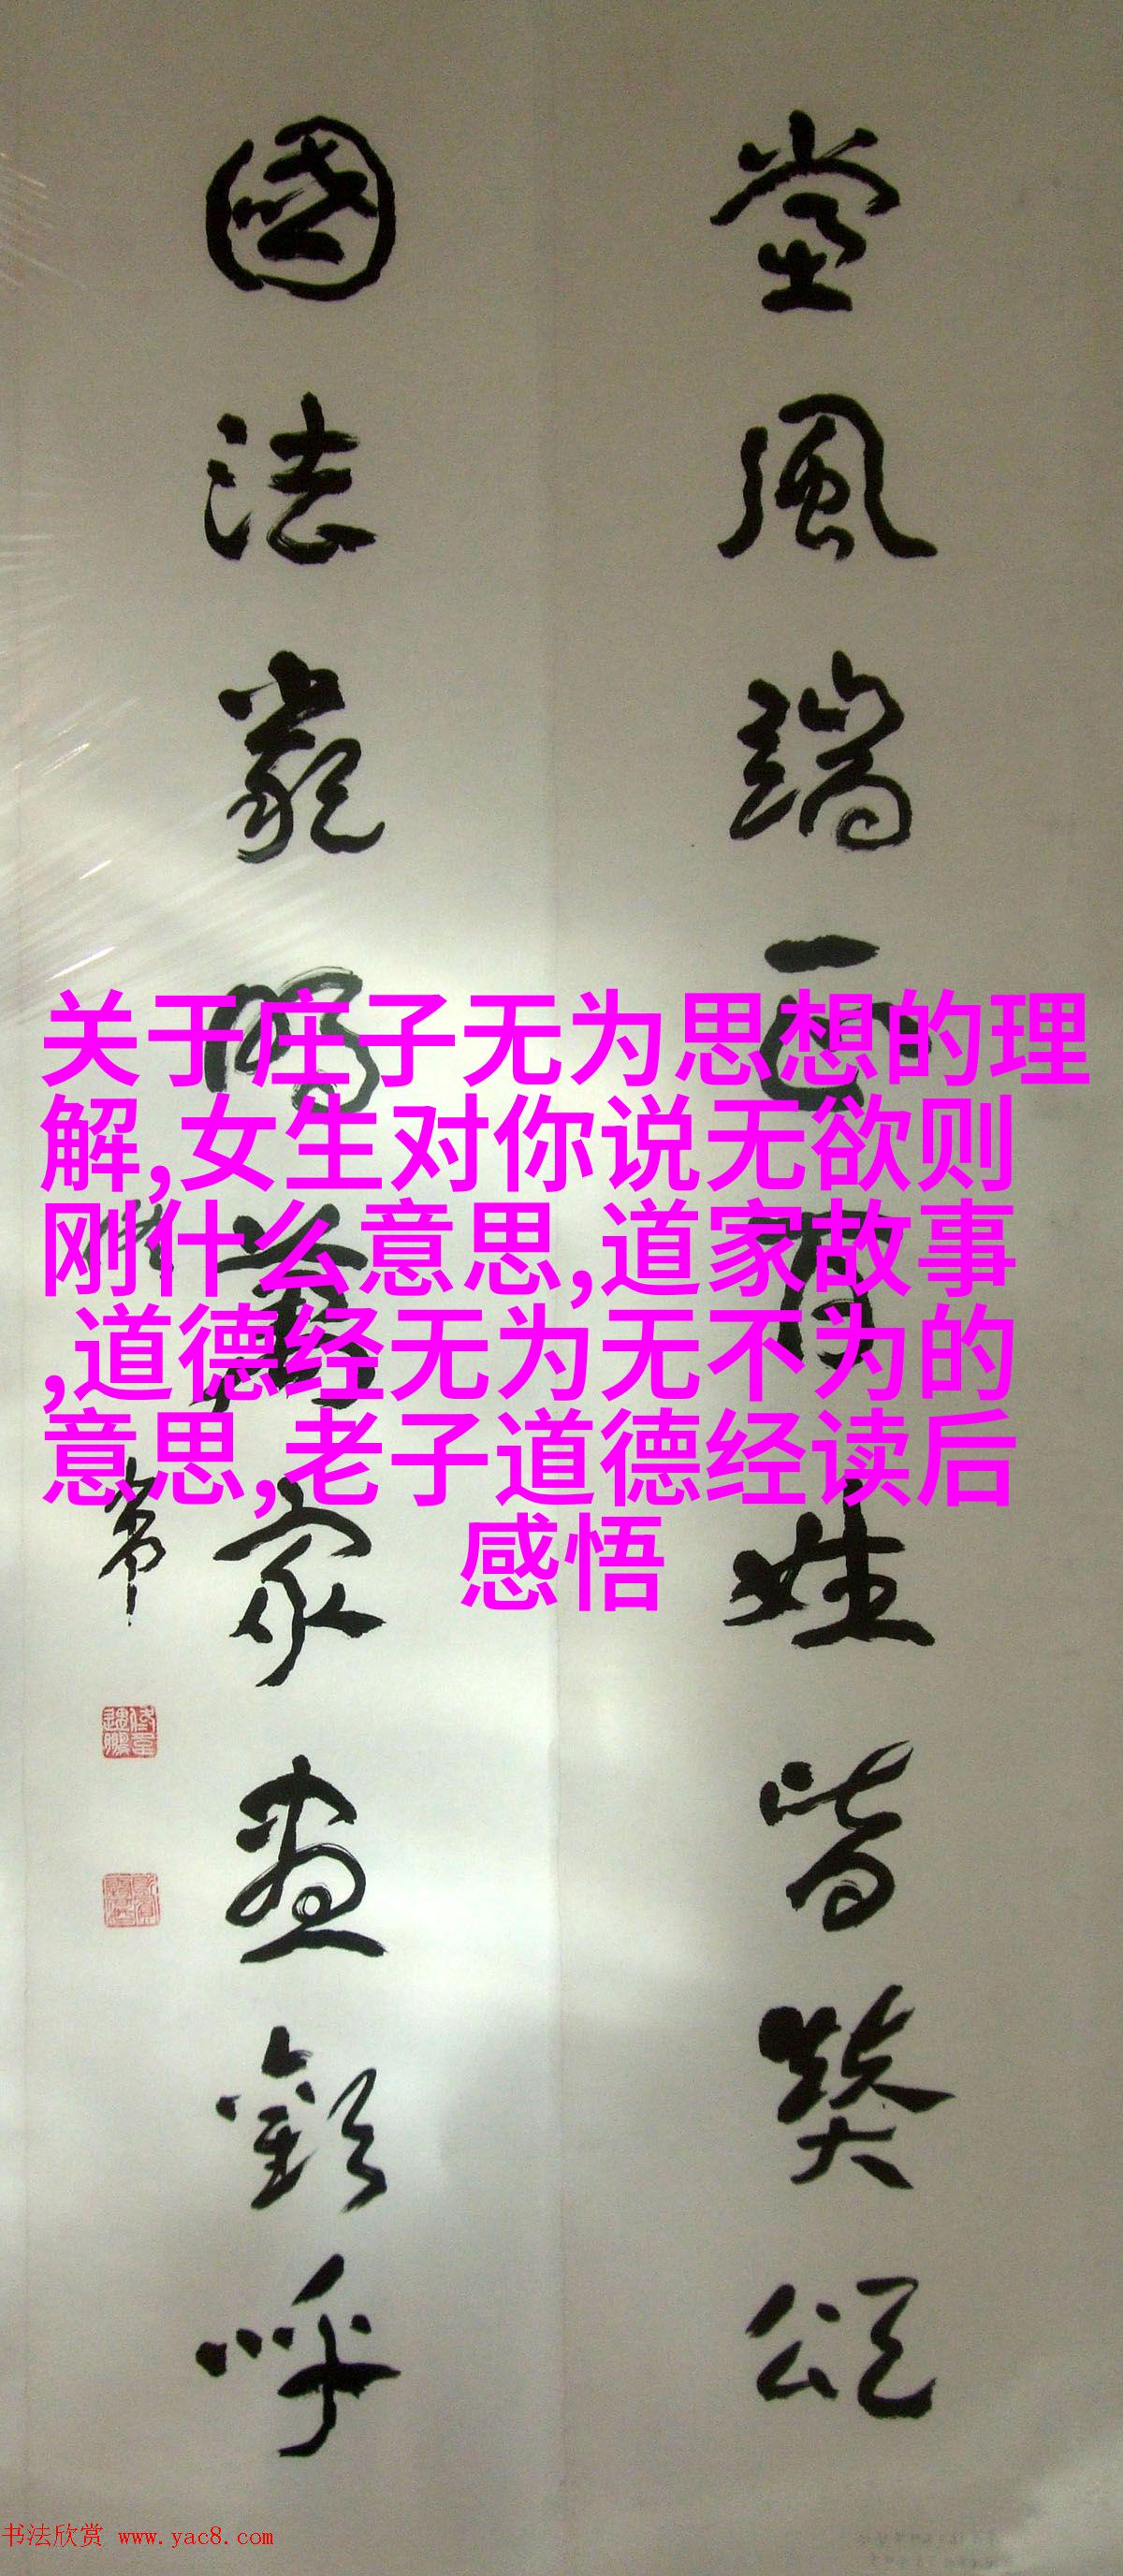 党風端正百姓皆賛頌
國法嚴明萬家盡歡呼
关于庄子无为思想的理
解,女生对你说无欲则
刚什么意思,道家故事
,道德经无为无不为的
意思,老子道德经读后
感悟
书法欣赏 www.yac8.com